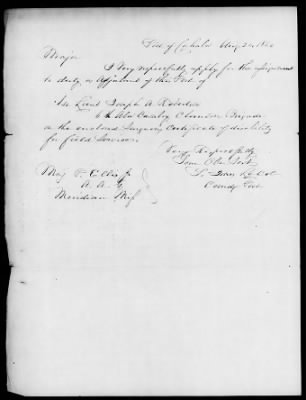 Major
I Very respectfully apply for the assignment
to duty as Adjutant of the Post of
Lieut Joseph A. Robertson
6th Ala Cavalry Clanton Brigade
on the enclosed Surgeons Certificate of disability
for field Service
Very Respectfully
Your Obt Svt
Comdg Post
Maj P. Ellis Jr
A. A. G
Meridian Miss